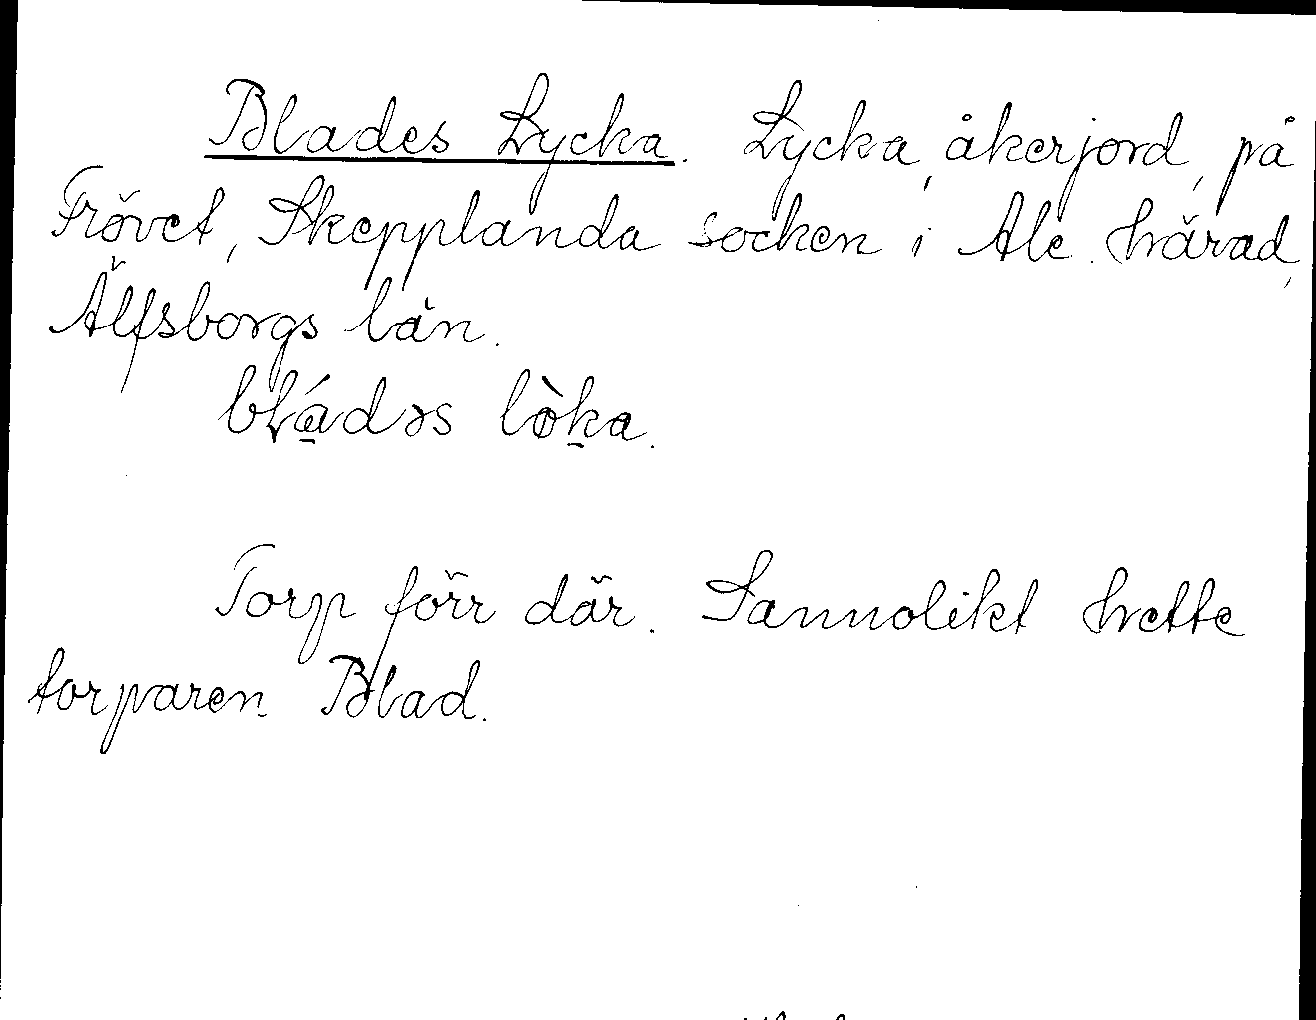 Blades Lycka. Lycka, åkerjord, på
Frövet, Skepplanda socken i Ale härad,
Älfsborgs län.
blá̱dəs lò̱ka.
Torp förr där. Sannolikt hette
torparen Blad.